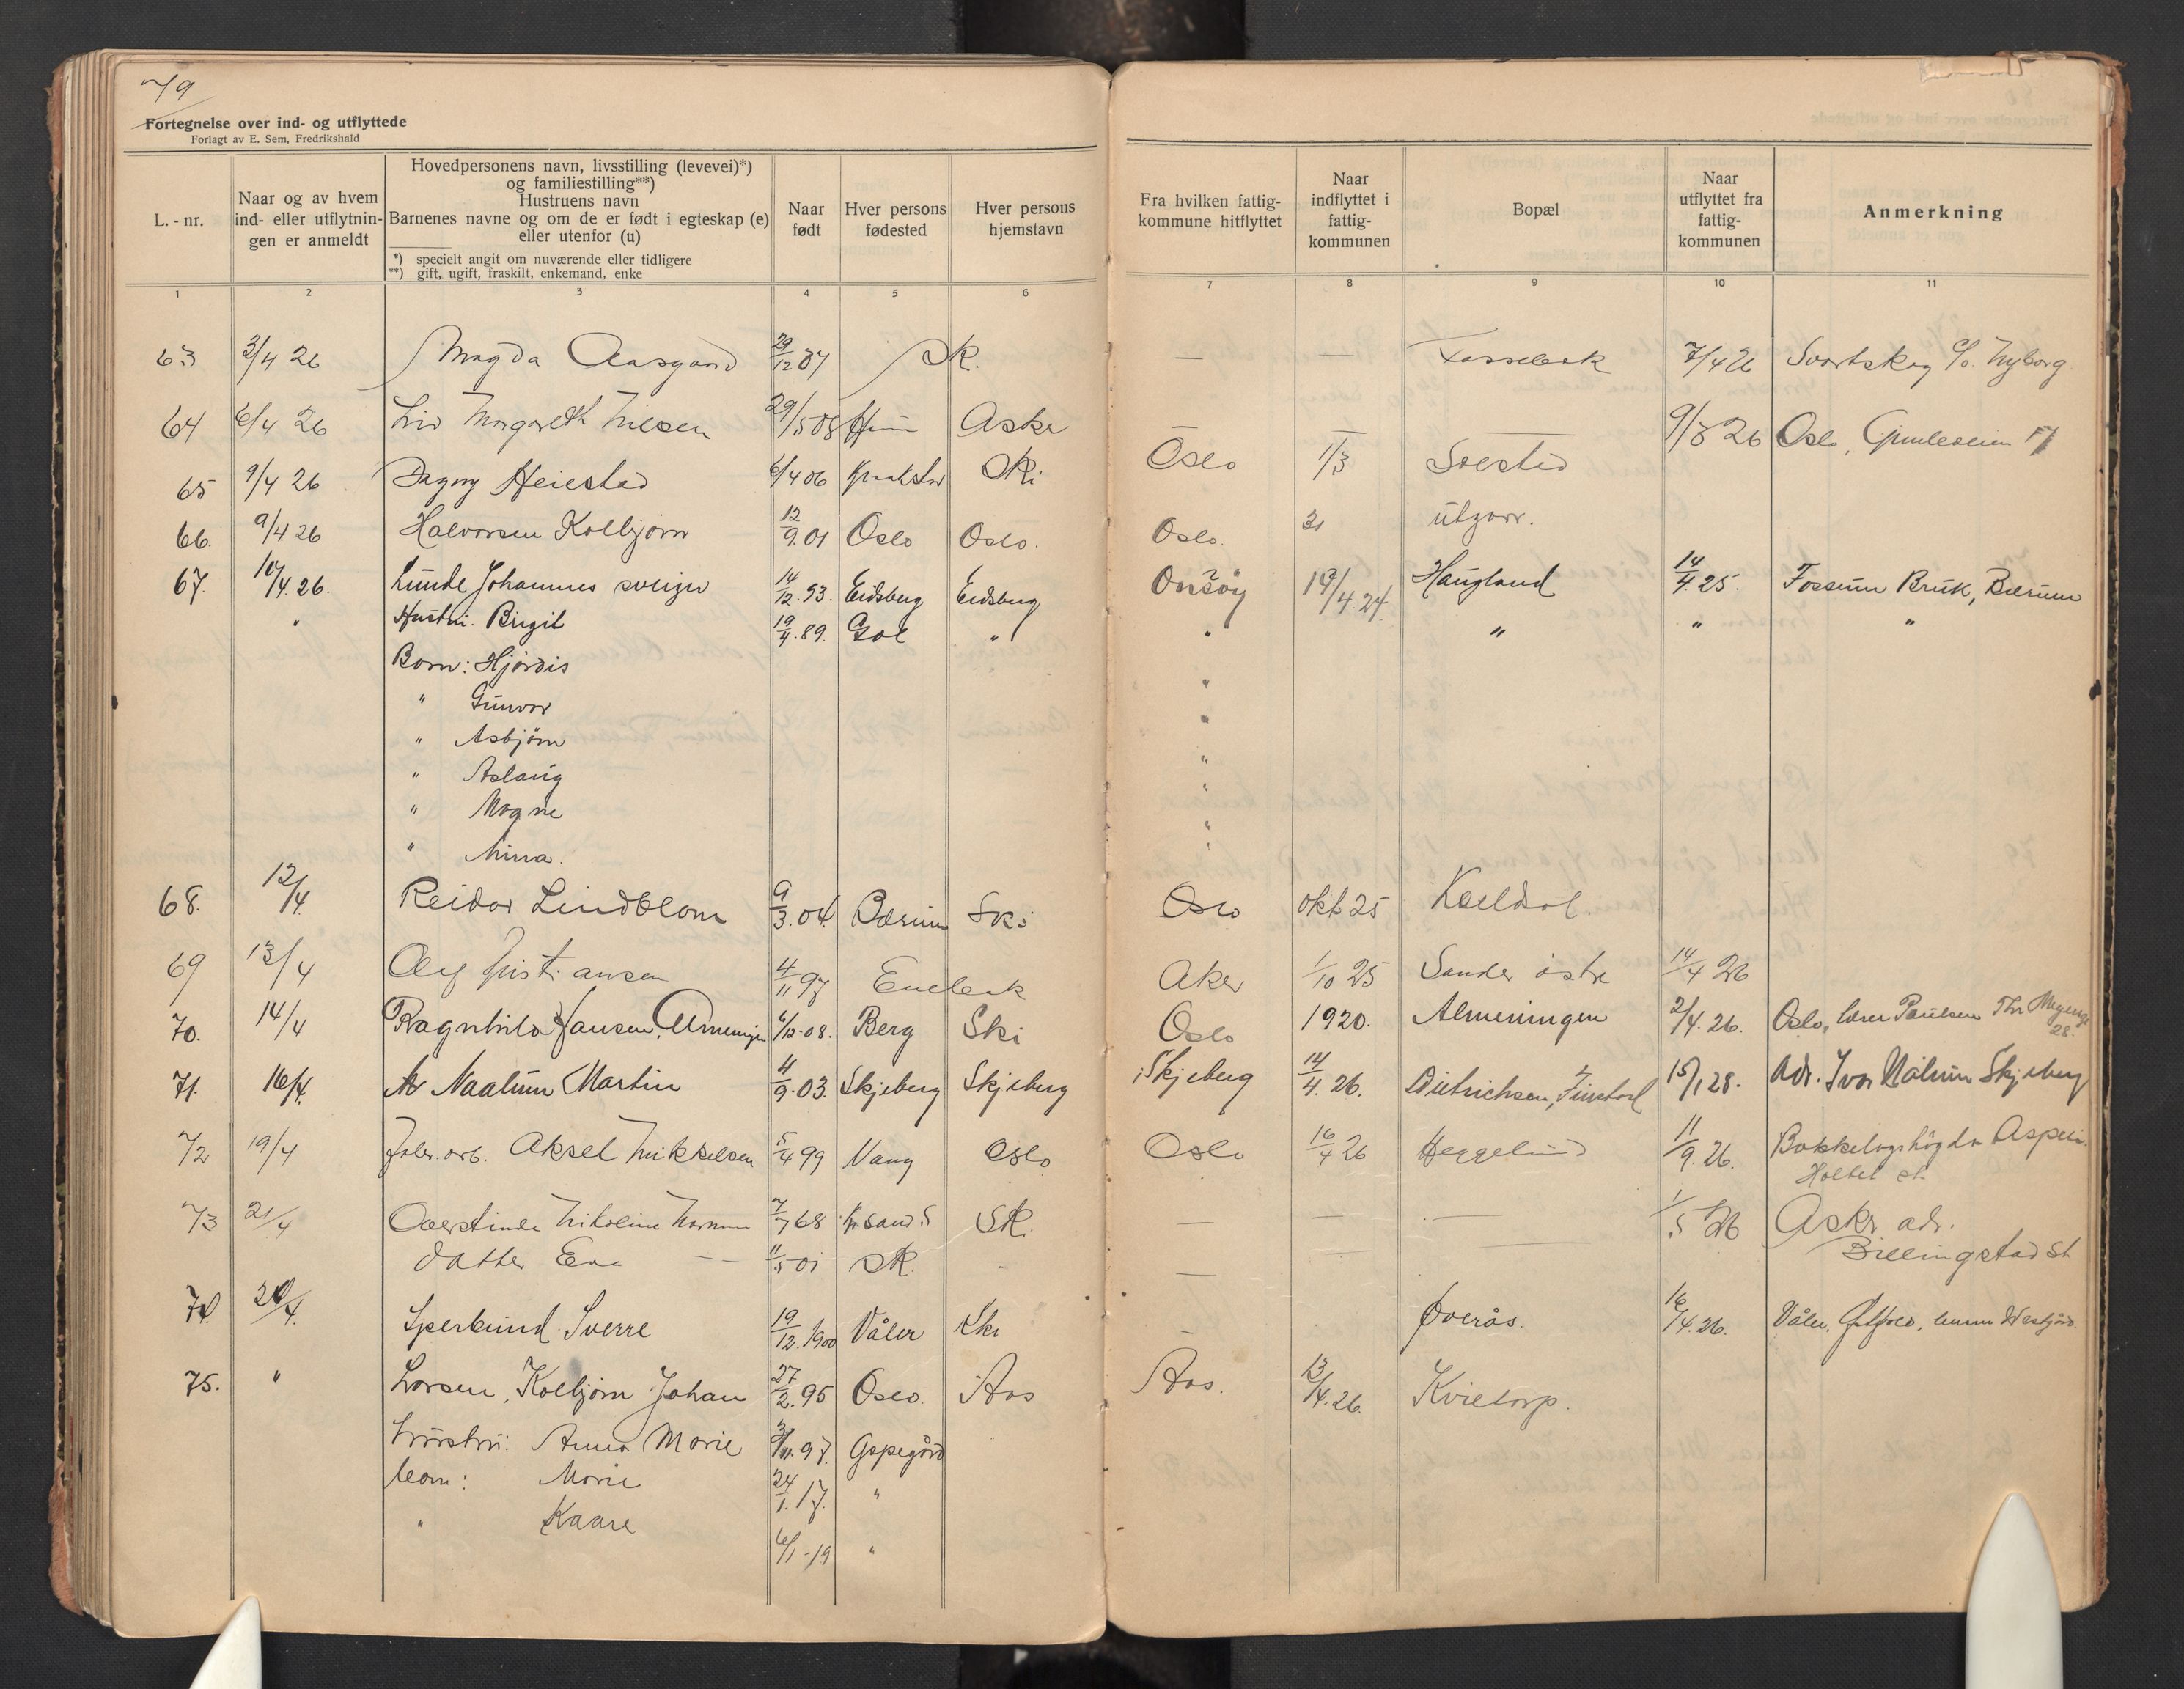 79
Fortegnelse over ind- og utflyttede
Forlagt av E. Sem, Fredrikshald
L. - nr.
Naar og av hvem
ind- eller utflytnin-
gen er anmeldt
Hovedpersonens navn, livsstilling (levevei)*)
og familiestilling**)
Hustruens navn
Barnenes navne og om de er født i egteskap (e)
eller utenfor (u)
*) specielt angit om nuværende eller tidligere
**) gift, ugift, fraskilt, enkemand, enke
Naar
født
Hver persons
fødested
Hver persons
hjemstavn
Fra hvilken fattig-
kommune hitflyttet
Naar
indflyttet i
fattig-
kommunen
Bopæl
Naar
utflyttet fra
fattig-
kommunen
Anmerkning
1 2 3 4 5 6 7 8 9 10 11
63 3/4 26 Magda Aasgaard 29/12 07 Ski — — 7/4 26 Svartskog c/o. Nyborg
64 6/4 26 Liv Margareth Nilsen 29/5 08 Asker — — 9/3 26 Oslo,
65 9/4 26 Dagny Heiestad 6/4 06 Kraakstad Ski Oslo 1/3 Solstad
66. 9/4 26 Halvorsen Kolbjørn 12/9.01 Oslo Oslo. Oslo.
67. 10/4.26. Lunde Johannes sveiger 14/12.93. Eidsberg Eidsberg Onsøy 14/4.24 Haugland 14/4.25. Fossum Bruk, Bærum
" Hustru. Birgit 19/4.89. Gol " " " " "
Barn: Hjørdis "
" Gunvor "
" Asbjørn "
" Aslaug "
" Magne "
" Minna. "
68. 12/4 Reidar Lindblom 9/3.04. Bærum Ski Oslo okt 25 Kjeldsol.
69 13/4 Olaf Kristiansen 4/11 97 Enebak Aker 1/10 25 Sander østre 14/4 26
70. 14/4 Ragnhild Hansen, Almenningen 6/12-08. Berg Ski Oslo 1920. Almeningen 2/4.26. Oslo, Lærer Paulsen Thv Meyersgt 28.
71. 16/4. Naalum Martin 4/9.03. Skjeberg Skjeberg Skjeberg 14/4.26. Dietrichsen, Finstad 15/1 28. Adr. Ivar Nålum Skjeberg
72 19/4 Fabr. arb. Aksel Mikkelsen 5/4 99 Vang Oslo Oslo 16/4 26 Heggelund 11/9.26. Bakkelagshøgda Aspelin.
Holtet st.
73 21/4 Nikoline 7/7 68 Kr.sand S Ski — — — 1/5 26 Asker adr.
datter Eva — — 11/5 01 Ski — Billingstad St
74 20/4. Sperlund Sverre 19/12.1900 Våler Ski — Øverås. 16/4.26. Våler, Østfold,
75. " Larsen, Kolbjørn Johan 27/2.95 Oslo. Aas Aas. 13/4.26. Kvietorp.
hustru: Anna Marie 97. Oppegård
barn: Marie 24/1.17. "
" Kaare 6/1-19 "